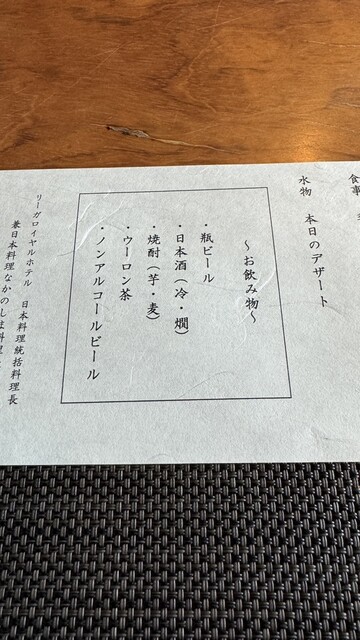 食事
水物　本日のデザート
～お飲み物～
・瓶ビール
・日本酒（冷・燗）
・焼酎（芋・麦）
・ウーロン茶
・ノンアルコールビール
リーガロイヤルホテル　日本料理統括料理長
兼日本料理なかのしま料理